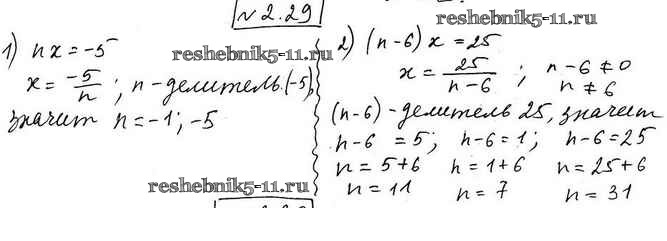 № 2.29
1) nx = -5
x = -5/n ; n - делитель (-5),
значит n = -1; -5
2) (n-6) x = 25
x = 25/(n-6) ; n-6 ≠ 0
n ≠ 6
(n-6) - делитель 25, значит
n-6 = 5; n-6 = 1; n-6 = 25
n = 5+6 n = 1+6 n = 25+6
n = 11 n = 7 n = 31
reshebnik5-11.ru
reshebnik5-11.ru
reshebnik5-11.ru